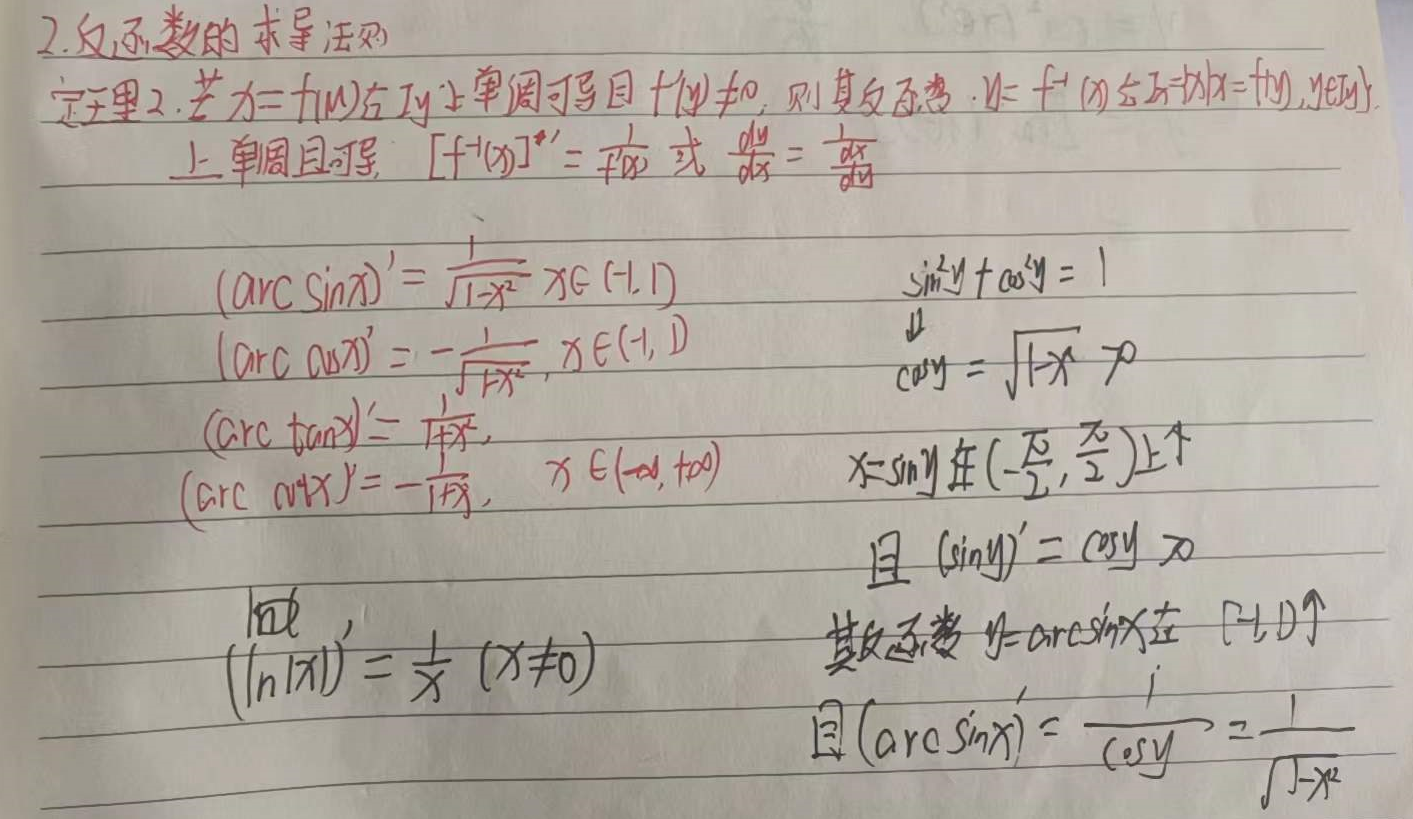 2.反函数的求导法则
定理2.若x=f(y)在Iy上单调可导且f'(y)≠0,则其反函数.y=f⁻¹(x)在Ix={x|x=f(y),y∈Iy}.
上单调且可导, [f⁻¹(x)]' = 1/f'(x) 或 dy/dx = 1/(dx/dy)
(arc sinx)' = 1/√(1-x²) x∈(-1,1)
(arc cosx)' = -1/√(1-x²), x∈(-1,1)
(arc tanx)' = 1/(1+x²),
(arc cotx)' = -1/(1+x²), x∈(-∞,+∞)
(ln|x|)' = 1/x (x≠0)
sin²y+cos²y=1
⇓
cosy = √(1-x²) >0
x=siny在(-π/2, π/2)上↑
且 (siny)' = cosy >0
其反函数 y=arcsinx在 [-1,1)↑
且(arc sinx)' = 1/cosy = 1/√(1-x²)